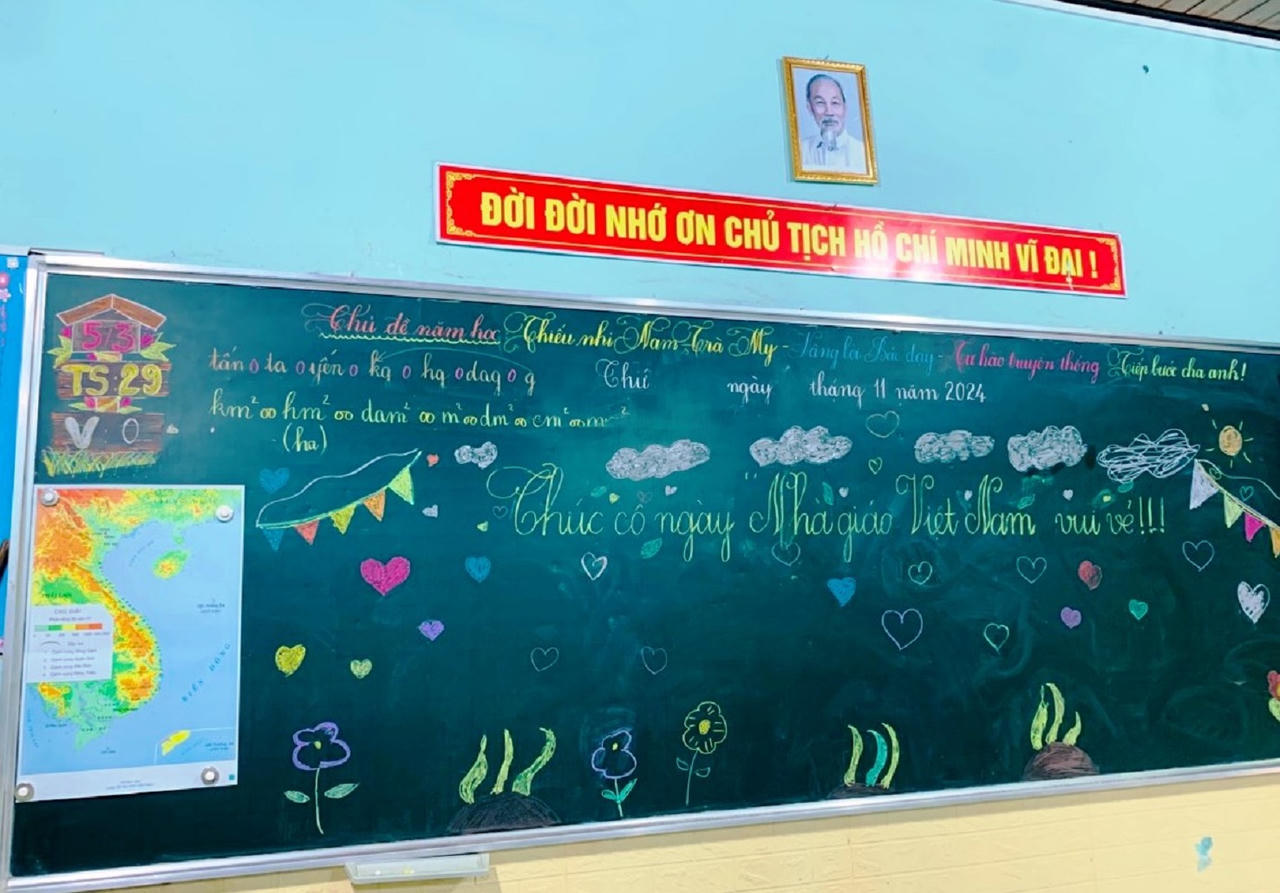 ĐỜI ĐỜI NHỚ ƠN CHỦ TỊCH HỒ CHÍ MINH VĨ ĐẠI !
Chủ đề năm học Thiếu nhi Nam Trà My - Vâng lời Bác dạy - Tự hào truyền thống Tiếp bước cha anh!
5/3
TS:29
V 0
tấn 0 tạ 0 yến 0 kg 0 hg 0 dag 0 g
Thứ ngày tháng 11 năm 2024
km² 00 hm² 00 dam² 00 m² 00 dm² 00 cm² 00 mm²
(ha)
Chúc cô ngày "Nhà giáo Việt Nam vui vẻ!!!
CHÚ GIẢI
BIỂN ĐÔNG